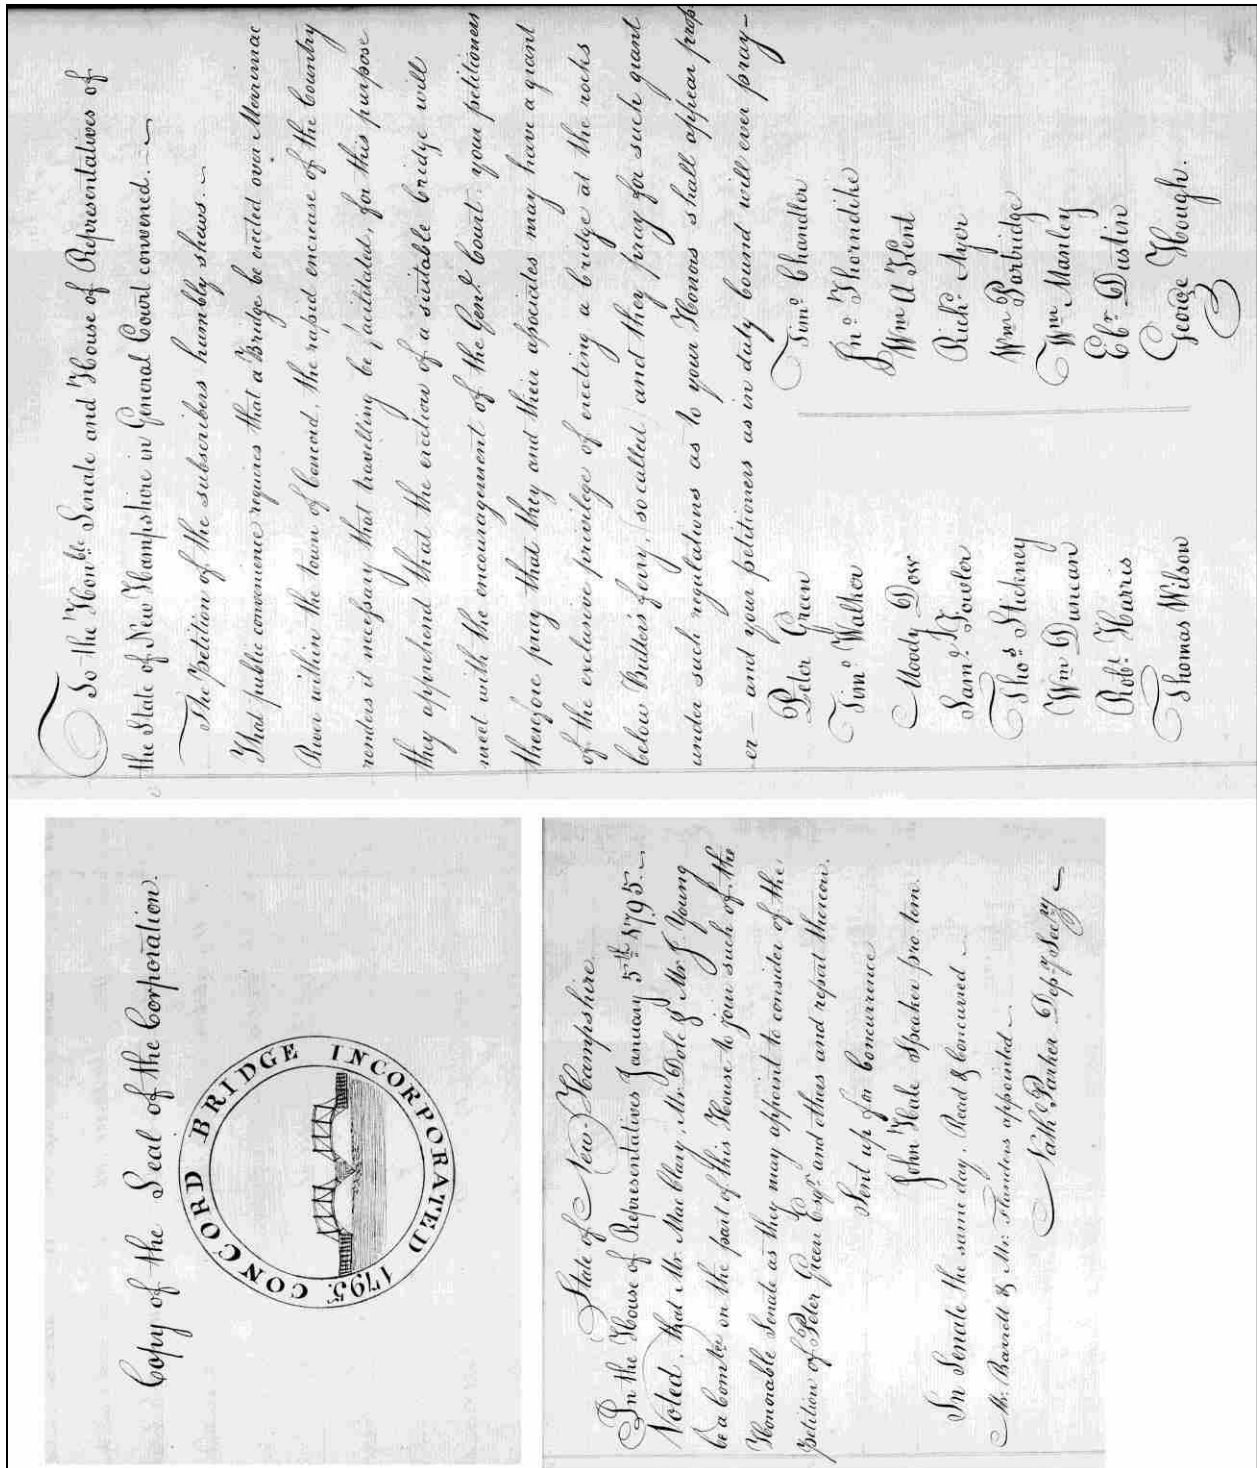 To the Hon.ble Senate and House of Representatives of
the State of New Hampshire in General Court convened.
The Petition of the subscribers humbly shews.
That public convenience requires that a Bridge be erected over Merrimac
River within the town of Concord, the rapid encrease of the Country
renders it necessary that travelling be facilitated, for this purpose
they apprehend that the erection of a suitable bridge will
meet with the encouragement of the Genl. Court. your petitioners
therefore pray that they and their associates may have a grant
of the exclusive privilege of erecting a bridge at the rocks
below Butlers ferry, (so called) and they pray for such grant
under such regulations as to your Honors shall appear prop
er — and your petitioners as in duty bound will ever pray—
Peter Green
Timo. Walker
Moody Dow
Saml. Fowler
Thos. Stickney
Wm Duncan
Robt. Harris
Thomas Wilson
Timo. Chandler
Jno. Thorndike
Wm A Kent
Richd. Ayer
Wm Partridge
Wm Manley
Ebr. Dustin
George Hough.
Copy of the Seal of the Corporation.
CONCORD BRIDGE INCORPORATED 1795.
State of New-Hampshire
In the House of Representatives January 5th 1795.
Voted, that Mr. Mac Clary, Mr. Dole & Mr. J. Young
be a comtee on the part of this House to join such of the
Honorable Senate as they may appoint to consider of the
petition of Peter Green Esqr. and others and report thereon.
Send up for concurrence
John Hale Speaker pro. tem.
In Senate the same day. Read & Concurred —
Mr. Barrett & Mr. Flanders appointed —
Nathl. Parker Depy. Secry —